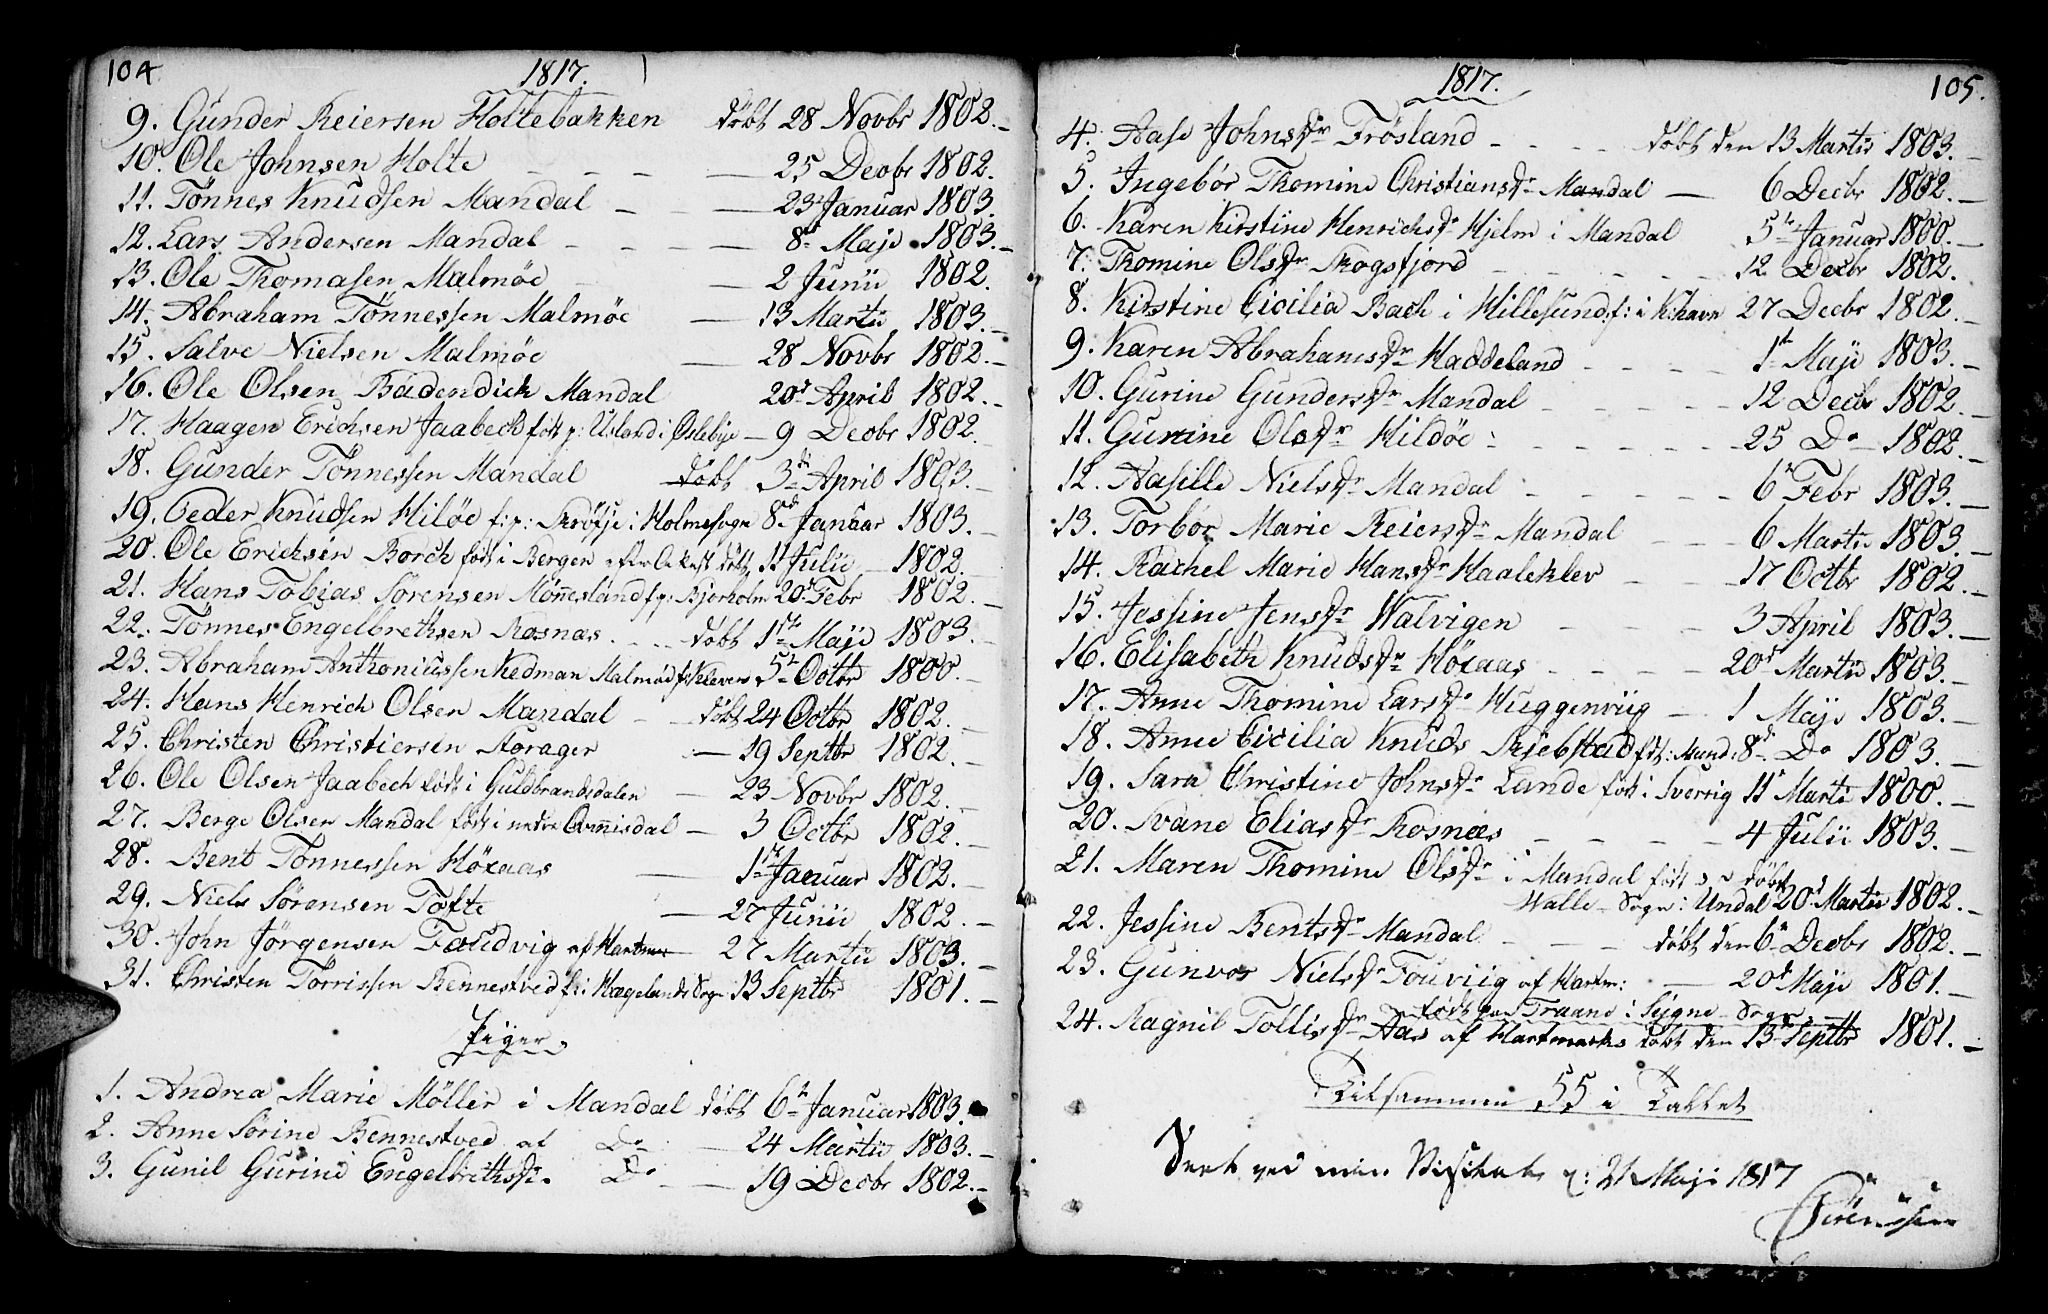 104
1817.
9. Gunder Reiersen Holtebakken døbt 28 Novbr 1802.
10. Ole Johnsen Holte 25 Decbr 1802.
11. Tønnes Knudsen Mandal 23 Januar 1803.
12. Lars Andersen Mandal 8d Maji 1803.
13. Ole Thomasen Malmöe 2 Junii 1802.
14. Abraham Tønnessen Malmöe 13 Martii 1803.
15. Salve Nielsen Malmöe 28 Novbr 1802.
16. Ole Olsen Badendick Mandal 20d April 1802.
17. Haagen Erichsen Jaabech født p: Usland i Oslebye 9 Decbr 1802.
18. Gunder Tønnessen Mandal døbt 3di April 1803.
19. Peder Knudsen Hilöe f: p: Skröfje i Holmesogn 8d Januar 1803.
20. Ole Erichsen Borch født i Bergen efter døbt 11 Julii 1802.
21. Hans Tobias Sörensen Mönnesland f. p. Bjerholm 20d Febr 1802.
22. Tønnes Engelbrethsen Rosnæs døbt 1ste Maji 1803.
23. Abraham Anthoniussen Kedman Malmöe f: Kleven 5te Octbr 1800.
24. Hans Henrich Olsen Mandal døbt 24 Octbr 1802.
25. Christen Christensen Aorager 19 Septbr 1802.
26. Ole Olsen Jaabech født i Guldbrandsdalen 23 Novbr 1802.
27. Berge Olsen Mandal født i neder Qvinnisdal 3 Octbr 1802.
28. Bent Tønnessen Höxaas 1te Januar 1802.
29. Niels Sörensen Tofte 27 Junii 1802.
30. John Jörgensen Faaludvig af Hartm 27 Martii 1803.
31. Christen Torrissen Rennestved f: i Hægelands Sogn 13 Septbr 1801.
Piger.
1. Andrea Marie Möller i Mandal døbt 6te Januar 1803.
2. Anne Sörine Rennestved af Do 24 Martii 1803.
3. Gunil Gurine Engelbrethsdr. Do 19 Decbr 1802.
1817.
105.
4. Aase Johnsdr Frösland døbt den 13 Martii 1803.
5. Ingebör Thomine Christiansdr Mandal 6 Decbr 1802.
6. Karen Kirstine Henrichsdr Hjelm i Mandal 5te Januar 1800.
7. Thomine Olsdr Skogsfjord 12 Decbr 1802.
8. Kirstine Cicilia Bach i Hillesund f: i K:havn 27 Decbr 1802.
9. Karen Abrahamsdr Haddeland 1te Maji 1803.
10. Gurine Gundersdr Mandal 12 Decbr 1802.
11. Gurine Olsdr Hildöe 25 Do 1802.
12. Aasille Nielsdr Mandal 6te Febr 1803.
13. Torbör Marie Reiersdr Mandal 6 Martii 1803.
14. Rachel Marie Hansdr Haaleklev 17 Octbr 1802.
15. Jessine Jensdr Halvigen 3 April 1803.
16. Elisabeth Knudsdr Höxaas 20d Martii 1803.
17. Anne Thomine Larsdr Huggenviig 1 Maji 1803.
18. Anne Cicilia Knuds Skiebstad f: Mand: 8de Do 1803.
19. Sara Christine Johnsdr Lande født i Sverrig 11te Martii 1800.
20. Svane Eliasdr Rosnæs 4 Julii 1803.
21. Maren Thomine Olsdr i Mandal født og døbt
Walle-Sogn i Undal 20d Martii 1802.
22. Jessine Bentsdr Mandal døbt den 6te Decbr 1802.
23. Gunvor Nielsdr Fouviig af Hartm: 20d Maji 1801.
født paa Traane i Søgne-Sogn
24. Ragnil Tollisdr Aas af Hartmarks døbt den 13de Septbr 1801.
Tilsammen 55 i Tallet
Seet ved min Visitats d: 21 Maji 1817
Sörenssen